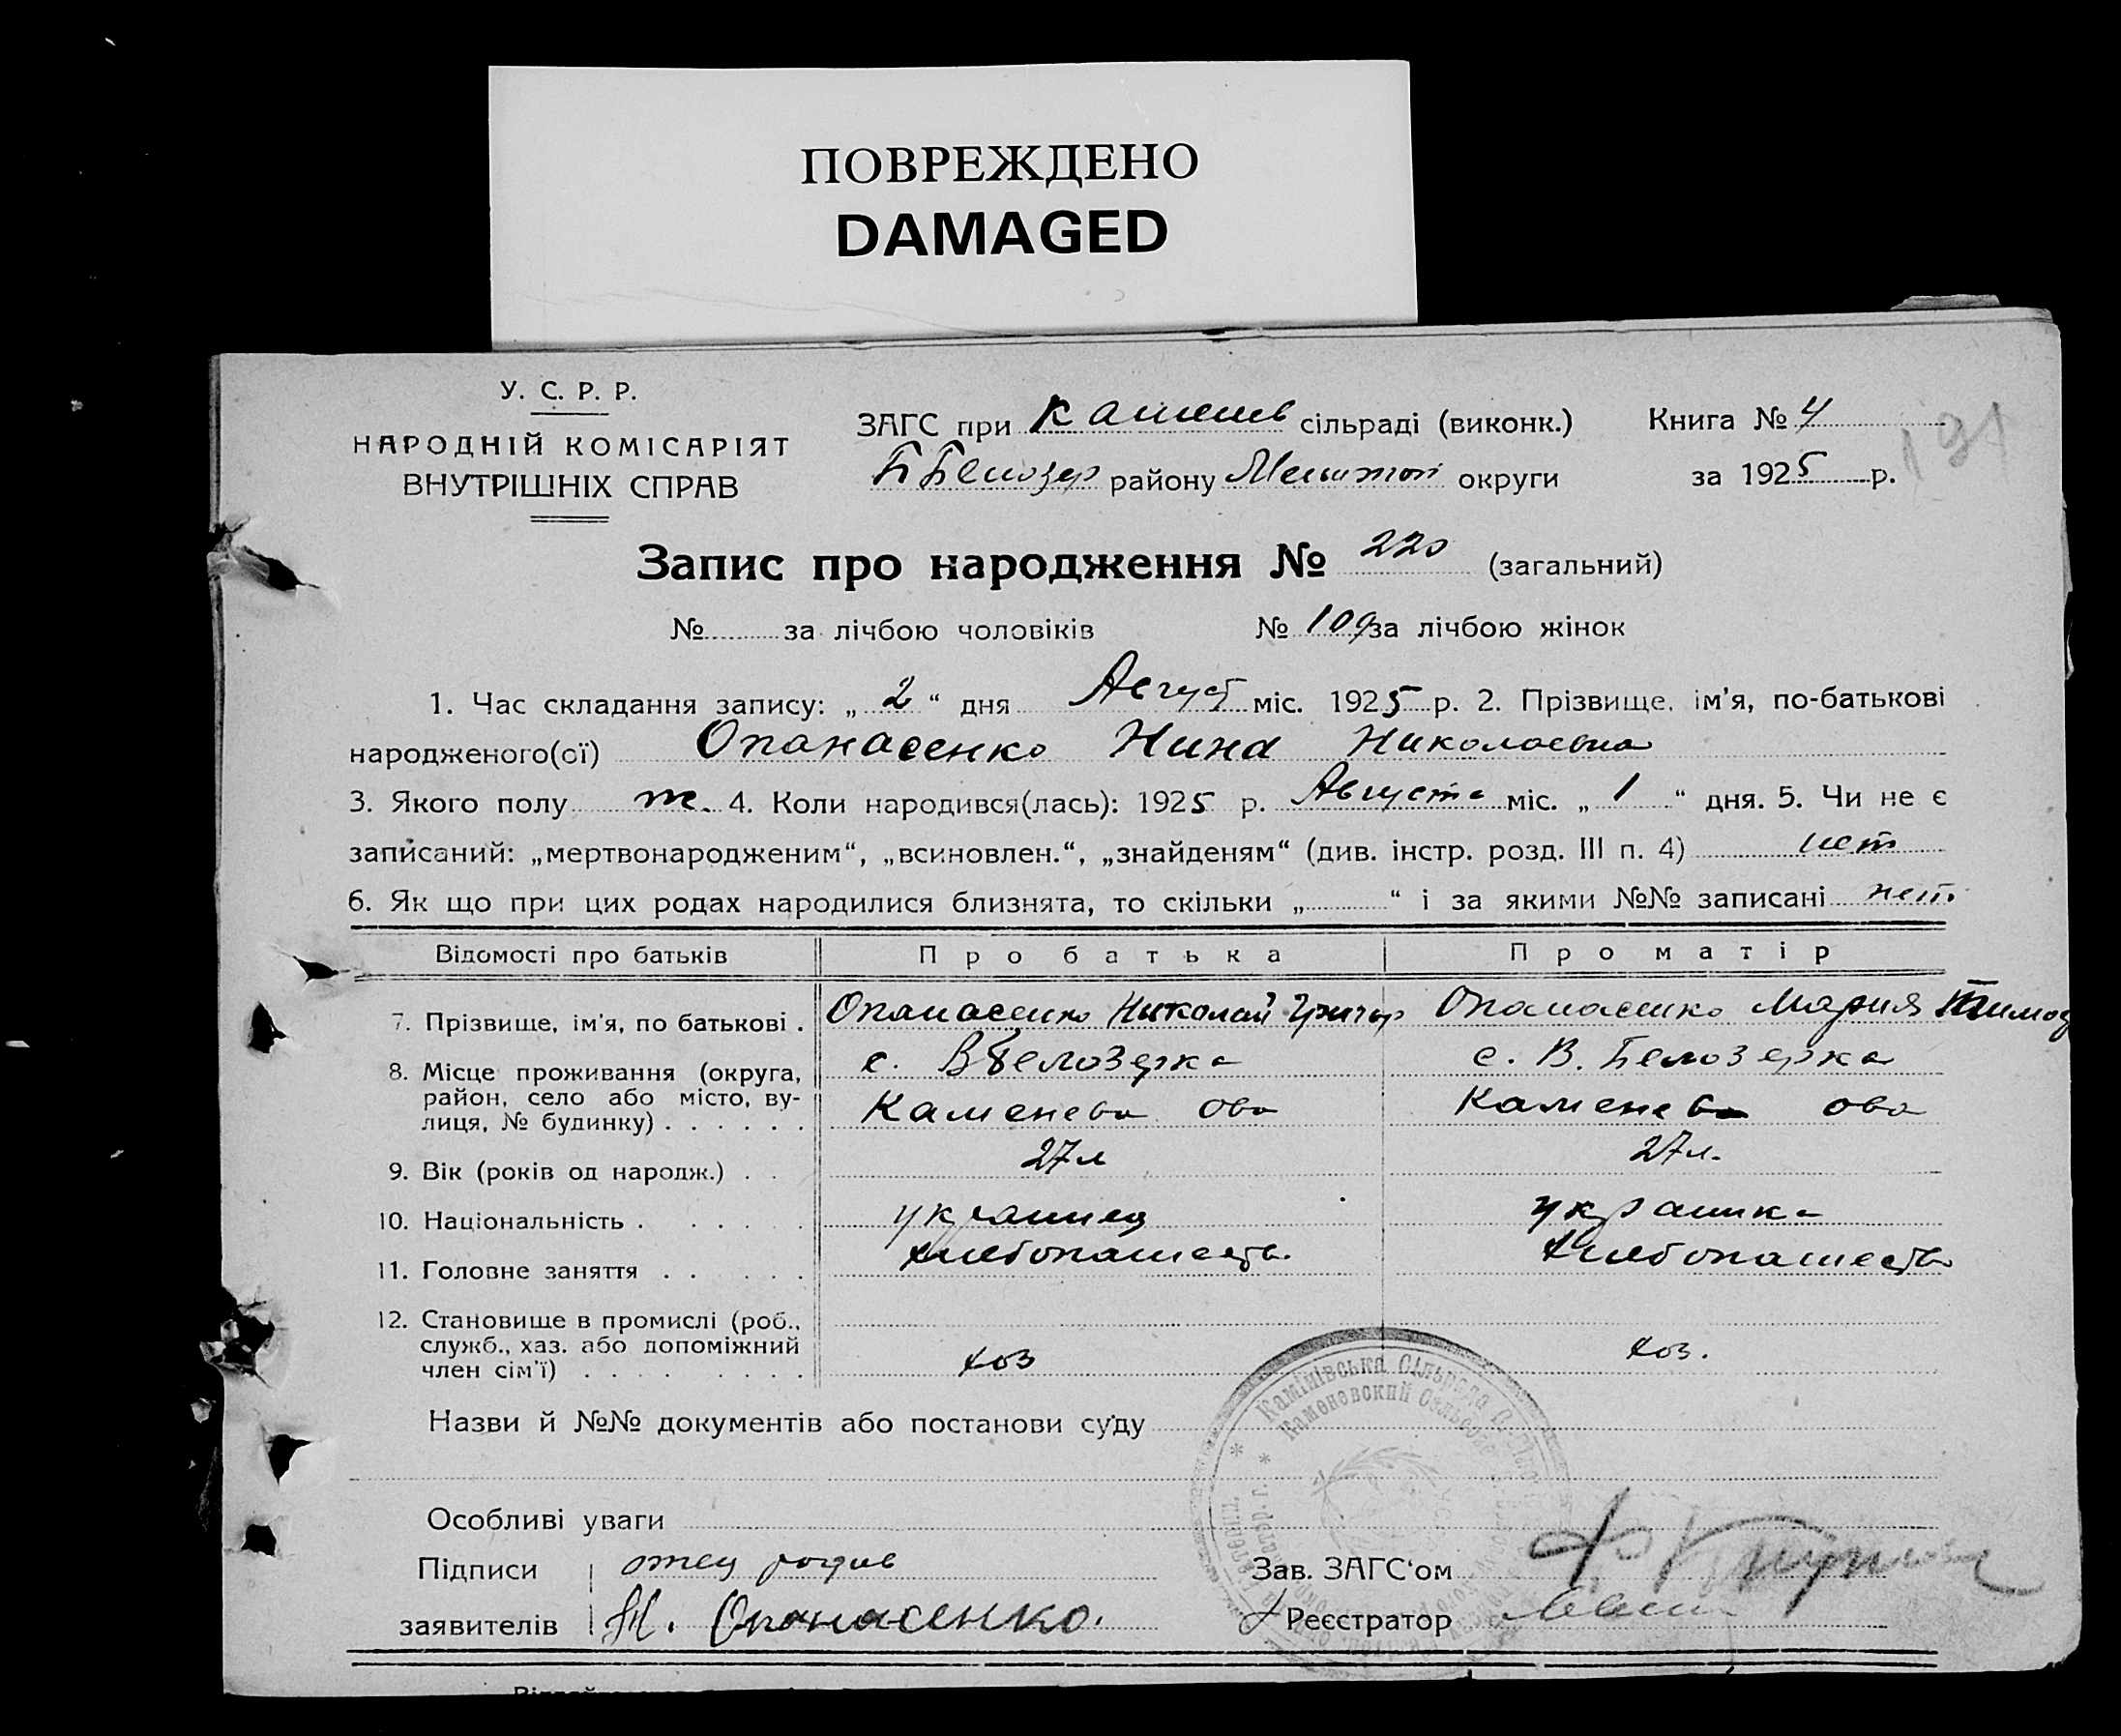 ПОВРЕЖДЕНО
DAMAGED
У. С. Р. Р.
НАРОДНІЙ КОМІСАРІЯТ
ВНУТРІШНІХ СПРАВ
ЗАГС при Каменев сільраді (виконк.) Книга № 4
Б Белозер району Мелитоп округи за 1925 р.
191
Запис про народження № 220 (загальний)
№ за лічбою чоловіків № 109 за лічбою жінок
1. Час складання запису: „ 2 “ дня Август міс. 1925 р. 2. Прізвище, ім'я, по-батькові
народженого(ої) Опанасенко Нина Николаевна
3. Якого полу ж. 4. Коли народився(лась): 1925 р. Августа міс. „ 1 “ дня. 5. Чи не є
записаний: „мертвонародженим“, „всиновлен.“, „знайденям“ (див. інстр. розд. III п. 4) нет
6. Як що при цих родах народилися близнята, то скільки „ “ і за якими №№ записані нет.
Відомості про батьків Про батька Про матір
7. Прізвище, ім'я, по батькові . Опанасенко Николай Григор Опанасенко Мария Тимоф
8. Місце проживання (округа, с. В Белозерка с. В. Белозерка
район, село або місто, ву-
лиця, № будинку) . . . . . . Каменева ова Каменева ова
9. Вік (років од народж.) . . 27 л 27 л.
10. Національність . . . . . . украинец украинка
11. Головне заняття . . . . . . хлебопашеств. хлебопашество
12. Становище в промислі (роб.,
служб., хаз. або допоміжний хоз хоз.
член сім'ї) . . . . . . . .
Назви й №№ документів або постанови суду
Камінівська Сільрада
Каменовский Сельсовет
Особливі уваги
Підписи отец родив Зав. ЗАГС'ом
заявителів Н. Опанасенко. Реєстратор